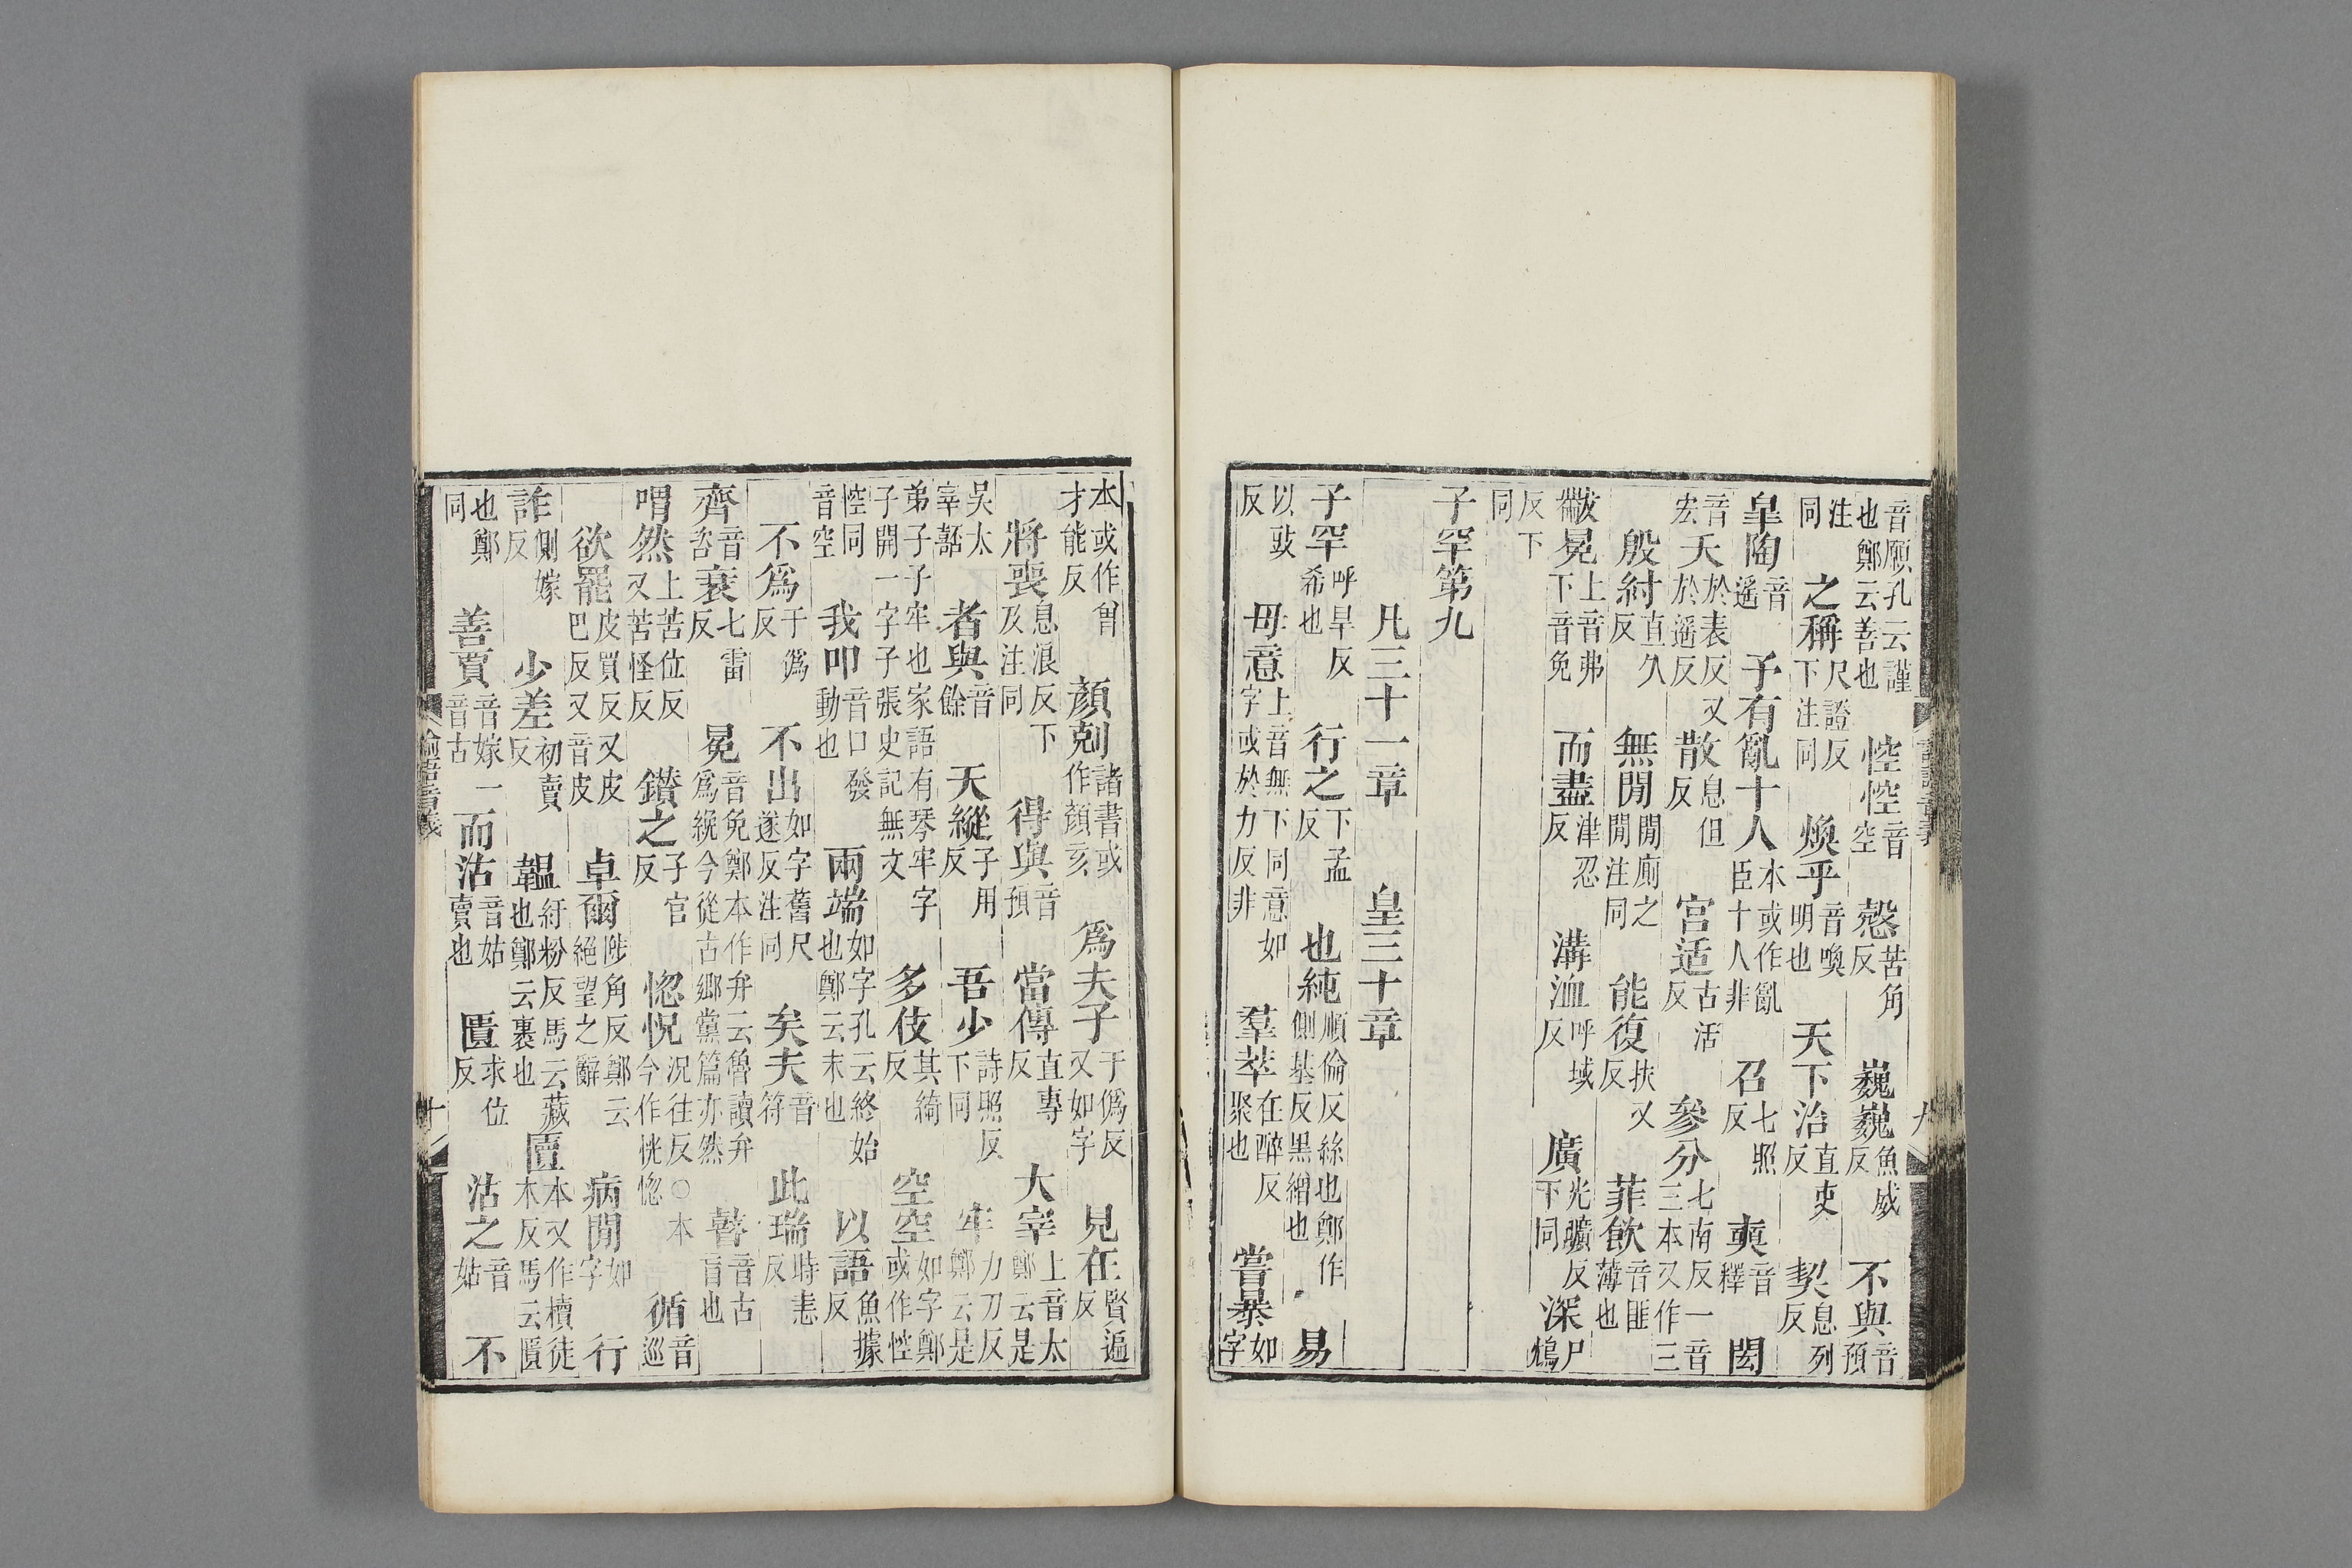 音願孔云謹也鄭云善也 悾悾音空 愨苦角反 巍巍魚威反 不與音預
注同 之稱尺證反下注同 煥乎音喚明也 天下治直吏反 契息列反
皐陶音遙 予有亂十人本或作亂臣十人非 召七照反 奭音釋 閎
音宏 夭於表反又於遙反 散息但反 宮适古活反 參分七南反一音三本又作三
殷紂直久反 無閒閒廁之閒注同 能復扶又反 菲飲音匪薄也
黻冕上音弗下音免 而盡津忍反 溝洫呼域反 廣光曠反下同 深尸鴆
反下同
子罕第九
凡三十一章 皇三十章
子罕呼旱反希也 行之下孟反 也純順倫反絲也鄭作側基反黑繒也 易
以豉反 毋意上音無下同意如字或於力反非 羣萃在醉反聚也 嘗暴如字
本或作曾才能反 顏剋諸書或作顏亥 爲夫子于僞反又如字 見在賢遍反
將喪息浪反下及注同 得與音預 當傳直專反 大宰上音太鄭云是
吳太宰嚭 者與音餘 天縱子用反 吾少詩照反下同 牢力刀反鄭云是
弟子子牢也家語有琴牢字子開一字子張史記無文 多伎其綺反 空空如字鄭或作悾
悾同音空 我叩音口發動也 兩端如字孔云終始也鄭云末也 以語魚據反
不爲于僞反 不出如字舊尺遂反注同 矣夫音符 此瑞時恚反
齊音咨 衰七雷反 冕音免鄭本作弁云魯讀弁爲絻今從古鄉黨篇亦然 瞽音古盲也
喟然上苦位反又苦怪反 鑽之子官反 惚怳況往反○本今作恍惚 循音巡
欲罷皮買反又皮巴反又音皮 卓爾陟角反鄭云絕望之辭 病閒如字 行
詐側嫁反 少差初賣反 韞紆粉反馬云藏也鄭云裹也 匵本又作櫝徒木反馬云匱
也鄭同 善賈音嫁一音古 而沽音姑賣也 匱求位反 沽之音姑 不
論語音義 十